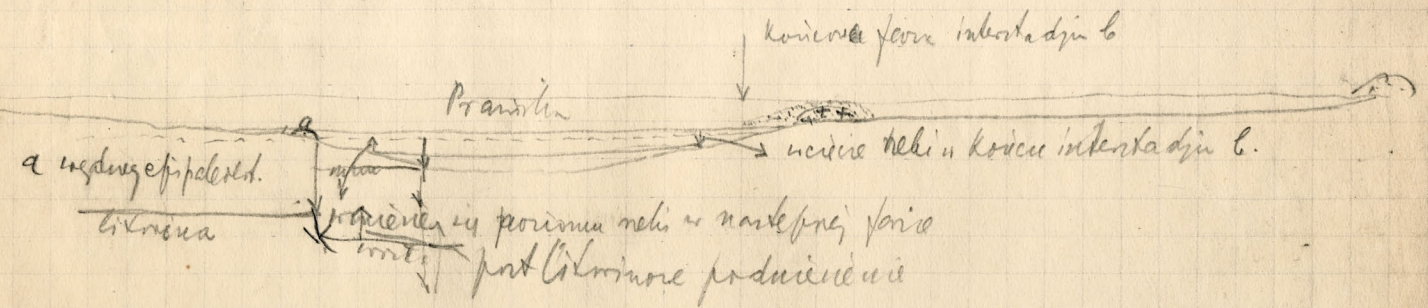 Końcowa faza interstadju b
Prawisła
a
ucięcie rzeki w końcu interstadju b.
a według epipaleolit.
litorina
podniesienie się poziomu rzeki w następnej fazie
post litorinowe podniesienie